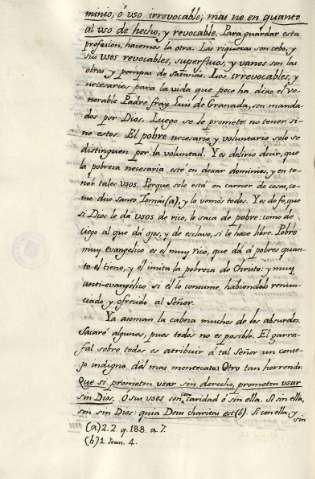 minio, ó uso irrevocable; mas no en quanto
al uso de hecho, y revocable. Para guardar esta
profesion, hacemos la otra. Las riquezas son cebo, y
sus usos revocables, superfluos, y vanos son las
obras y pompas de Satanás. Los irrevocables, y
necesarios para la vida que poco ha dixo el ve-
nerable Padre fray Luis de Granada, son manda
dos por Dios. Luego se le promete no tener si-
no estos. El pobre necesario, y voluntario solo se
distinguen por la voluntad. Ya es delirio decir, que
la pobreza necesaria esté en dexar dominios, y en te-
ner tales usos. Porque solo está en carecer de cosa, co-
mo dixo Santo Tomás (a), y lo vemos todos. Ya es de fe, que
si Dios le da usos de rico, le saca de pobre: como de
ciego al que dá ojos, y de esclavo, si le hace libre. Pobre
muy evangelico es el muy rico, que dá á pobres quan-
to él tiene, y él imita la pobreza de Christo: y muy
anti-evangelico si él lo consume, habiendolo renun-
ciado y ofrecido al Señor.
Ya asoman la cabeza muchos de los absurdos.
Sacaré algunos, pues todos no es posible. El garra-
fal sobre todos es atribuir á tal Señor un conse-
jo indigno del mas mentecato. Otro tan horrendo.
Que si prometen usar sin derecho, prometen usar
sin Dios. O sus usos con caridad ó sin ella. Si sin ella,
son sin Dios: quia Deus charitas est (b). Si con ella, y
sin
(a) 2. 2. q. 188. a. 7.
(b) 1. Joan. 4.